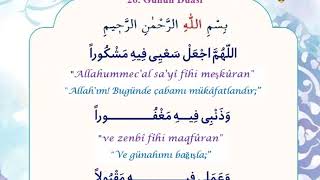 26. Günün Duası
بِسْمِ اللّٰهِ الرَّحْمٰنِ الرَّحٖيمِ
اَللّٰهُمَّ اجْعَلْ سَعْيِى فٖيهِ مَشْكُوراً
"Allahummec'al sa'yî fîhi meşkûran"
"Allah'ım! Bugünde çabamı mükâfatlandır;"
وَذَنْبِى فٖيهِ مَغْفُوراً
"ve zenbî fîhi maqfûran"
"Ve günahımı bağışla;"
وَعَمَلِى فٖيهِ مَقْبُولاً